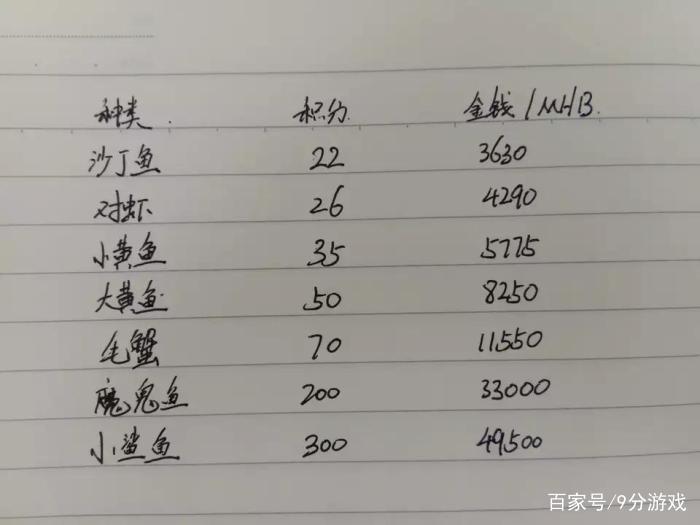 种类 积分 金钱/MHB
沙丁鱼 22 3630
对虾 26 4290
小黄鱼 35 5775
大黄鱼 50 8250
毛蟹 70 11550
魔鬼鱼 200 33000
小鲨鱼 300 49500
百家号/9分游戏